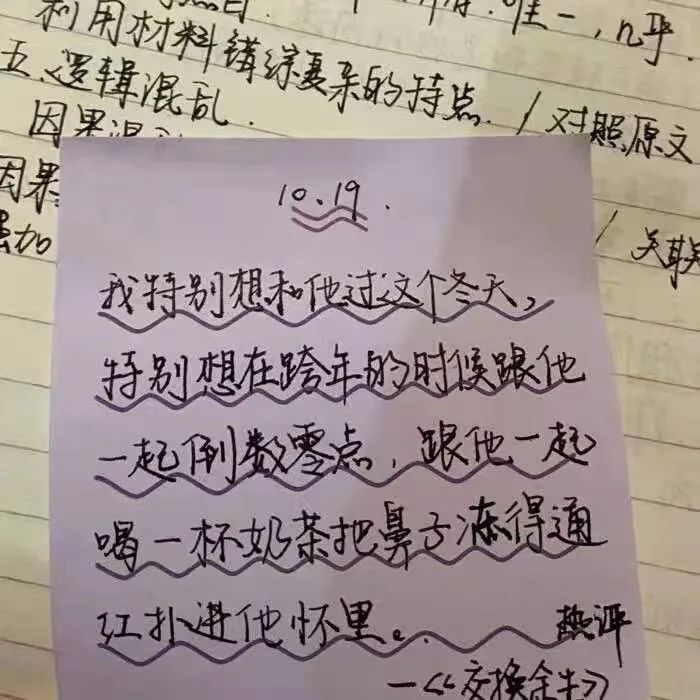 利用材料错综复杂的特点. / 对照原文
五.逻辑混乱.
因果混
因果
10.19.
我特别想和他过这个冬天,
特别想在跨年的时候跟他
一起倒数零点,跟他一起
喝一杯奶茶把鼻子冻得通
红扑进他怀里。 热评
—《交换余生》